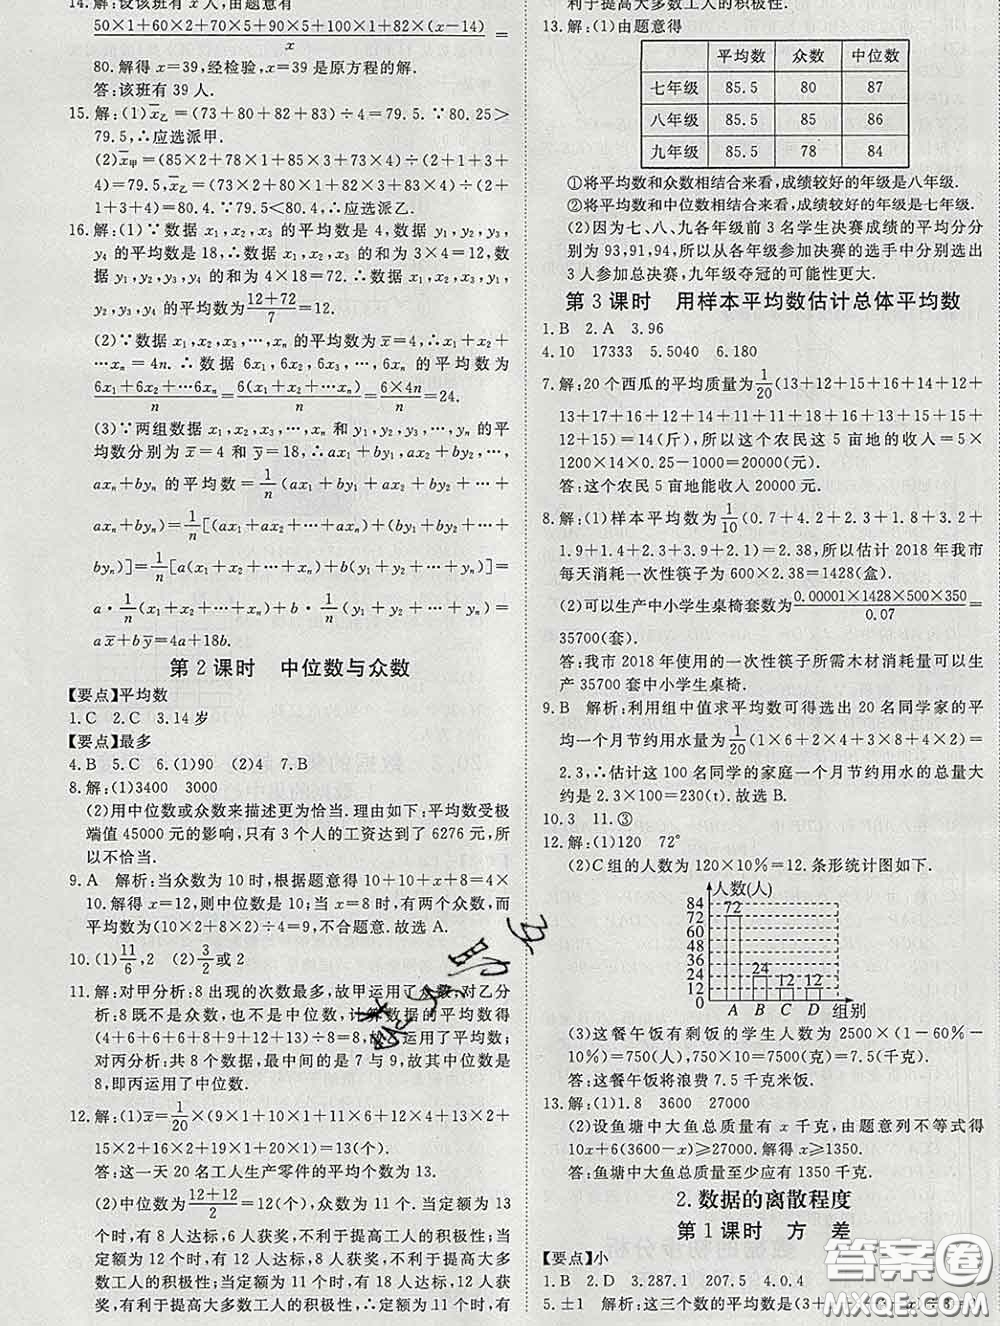 14.解:设该班有 x 人,由题意有
50×1+60×2+70×5+90×5+100×1+82×(x-14)/x=
80.解得 x=39,经检验,x=39 是原方程的解.
答:该班有 39 人.
15.解:(1)x̄乙=(73+80+82+83)÷4=79.5.∵80.25>
79.5,∴应选派甲.
(2)x̄甲=(85×2+78×1+85×3+73×4)÷(2+1+3+
4)=79.5,x̄乙=(73×2+80×1+82×3+83×4)÷
(2+1+3+4)=80.4.∵79.5<80.4,∴应选派乙.
16.解:(1)∵数据 x₁,x₂,x₃ 的平均数是 4,数据 y₁,y₂,y₃,
y₄ 的平均数是 18,∴数据 x₁,x₂,x₃ 的和为 3×4=12,数
据 y₁,y₂,y₃,y₄ 的和为 4×18=72.∴数据 x₁,x₂,x₃,y₁,
y₂,y₃,y₄ 的平均数为(12+72)/7=12.
(2)∵数据 x₁,x₂,x₃,…,xₙ 的平均数为 x̄=4,∴x₁+x₂+
…xₙ=4n.∴数据 6x₁,6x₂,…,6xₙ 的平均数为
(6x₁+6x₂+…6xₙ)/n=6(x₁+x₂+…+xₙ)/n=(6×4n)/n=24.
(3)∵两组数据 x₁,x₂,x₃,…,xₙ 和 y₁,y₂,y₃,…,yₙ 的平
均数分别为 x̄=4 和 ȳ=18,∴ax₁+by₁,ax₂+by₂,…,
axₙ+byₙ 的平均数=1/n(ax₁+by₁+ax₂+by₂+…+
axₙ+byₙ)=1/n[(ax₁+ax₂+…+axₙ)+(by₁+by₂+…+
byₙ)]=1/n[a(x₁+x₂+…+xₙ)+b(y₁+y₂+…+yₙ)]=
a·1/n(x₁+x₂+…+xₙ)+b·1/n(y₁+y₂+…+yₙ)=
ax̄+bȳ=4a+18b.
第 2 课时 中位数与众数
【要点】平均数
1.C 2.C 3.14 岁
【要点】最多
4.B 5.C 6.(1)90 (2)4 7.B
8.解:(1)3400 3000
(2)用中位数或众数来描述更为恰当.理由如下:平均数受极
端值 45000 元的影响,只有 3 个人的工资达到了 6276 元,所
以不恰当.
9.A 解析:当众数为 10 时,根据题意得 10+10+x+8=4×
10.解得 x=12,则中位数是 10;当 x=8 时,有两个众数,而
平均数为(10×2+8×2)÷4=9,不合题意.故选 A.
10.(1)11/6,2 (2)3/2或 2
11.解:对甲分析:8 出现的次数最多,故甲运用了众数;对乙分
析:8 既不是众数,也不是中位数,计算数据的平均数得
(4+6+6+6+8+9+12+13)÷8=8,故乙运用了平均数;
对丙分析:共 8 个数据,最中间的是 7 与 9,故其中位数是
8,即丙运用了中位数.
12.解:(1)x̄=1/20×(9×1+10×1+11×6+12×4+13×2+
15×2+16×2+19×1+20×1)=13(个).
答:这一天 20 名工人生产零件的平均个数为 13.
(2)中位数为(12+12)/2=12(个),众数为 11 个.当定额为 13
个时,有 8 人达标,6 人获奖,不利于提高工人的积极性;当
定额为 12 个时,有 12 人达标,8 人获奖,不利于提高大多
数工人的积极性;当定额为 11 个时,有 18 人达标,12 人获
奖,有利于提高大多数工人的积极性.∴定额为 11 个时,有
利于提高大多数工人的积极性.
13.解:(1)由题意得
平均数 众数 中位数
七年级 85.5 80 87
八年级 85.5 85 86
九年级 85.5 78 84
①将平均数和众数相结合来看,成绩较好的年级是八年级.
②将平均数和中位数相结合来看,成绩较好的年级是七年级.
(2)因为七、八、九各年级前 3 名学生决赛成绩的平均分分
别为 93,91,94,所以从各年级参加决赛的选手中分别选出
3 人参加总决赛,九年级夺冠的可能性更大.
第 3 课时 用样本平均数估计总体平均数
1.B 2.A 3.96
4.10 17333 5.5040 6.180
7.解:20 个西瓜的平均质量为1/20(13+12+15+16+12+14+
13+17+16+12+14+11+11+18+16+13+15+15+
12+15)=14(斤),所以这个农民这 5 亩地的收入=5×
1200×14×0.25-1000=20000(元).
答:这个农民 5 亩地能收入 20000 元.
8.解:(1)样本平均数为1/10(0.7+4.2+2.3+1.8+3.2+
1.9+1.4+2.3+3.9+2.1)=2.38,所以估计 2018 年我市
每天消耗一次性筷子为 600×2.38=1428(盒).
(2)可以生产中小学生桌椅套数为(0.00001×1428×500×350)/0.07=
35700(套).
答:我市 2018 年使用的一次性筷子所需木材消耗量可以生
产 35700 套中小学生桌椅.
9.B 解析:利用组中值求平均数可得选出 20 名同学家的平
均一个月节约用水量为1/20(1×6+2×4+3×8+4×2)=
2.3,∴估计这 100 名同学的家庭一个月节约用水的总量大
约是 2.3×100=230(t).故选 B.
10.3 11.③
12.解:(1)120 72°
(2)C 组的人数为 120×10%=12.条形统计图如下.
人数(人)
84
72
60
48
36
24
12
0
72 24 12 12
A B C D 组别
(3)这餐午饭有剩饭的学生人数为 2500×(1-60%-
10%)=750(人),750×10=7500(克)=7.5(千克).
答:这餐午饭将浪费 7.5 千克米饭.
13.解:(1)1.8 3600 27000
(2)设鱼塘中大鱼总质量有 x 千克,由题意列不等式得
10x+6(3600-x)≥27000.解得 x≥1350.
答:鱼塘中大鱼总质量至少应有 1350 千克.
2.数据的离散程度
第 1 课时 方 差
【要点】小
1.B 2.D 3.287.1 207.5 4.0.4
5.±1 解析:这三个数的平均数是(3+
答案圈